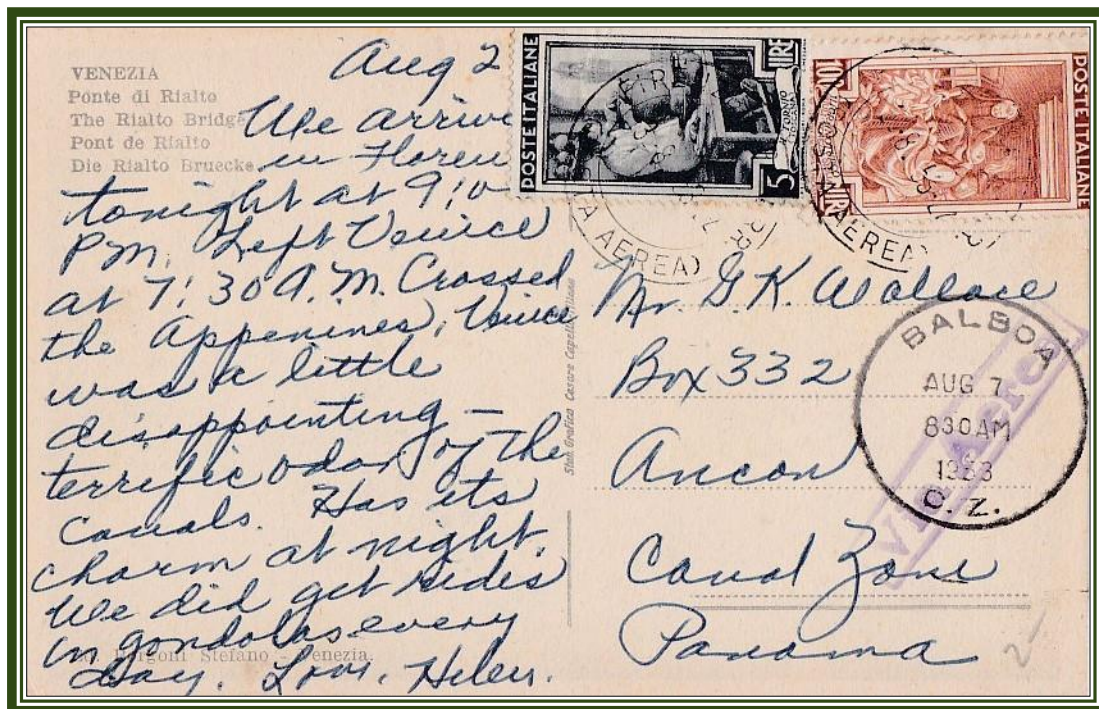 VENEZIA
Ponte di Rialto
The Rialto Bridge
Pont de Rialto
Die Rialto Bruecke
Aug 2
We arrive
in Floren
tonight at 9:0
P.M. Left Venice
at 7:30 A.M. Crossed
the Appenines, Venice
was a little
disappointing –
terrific odor of the
Canals. Has its
charm at night.
We did get rides
in gondolas every
day. Love, Helen.
Borgoni Stefano - Venezia.
Stab. Grafico Cesare Capello
POSTE ITALIANE
LIRE
5
IL TORNIO
POSTE ITALIANE
10
LIRE
AEREA)
AEREA)
Mr. G. K. Wallace
Box 332
Ancon
Canal Zone
Panama
BALBOA
AUG 7
830AM
1953
C. Z.
Via Aerea
2-